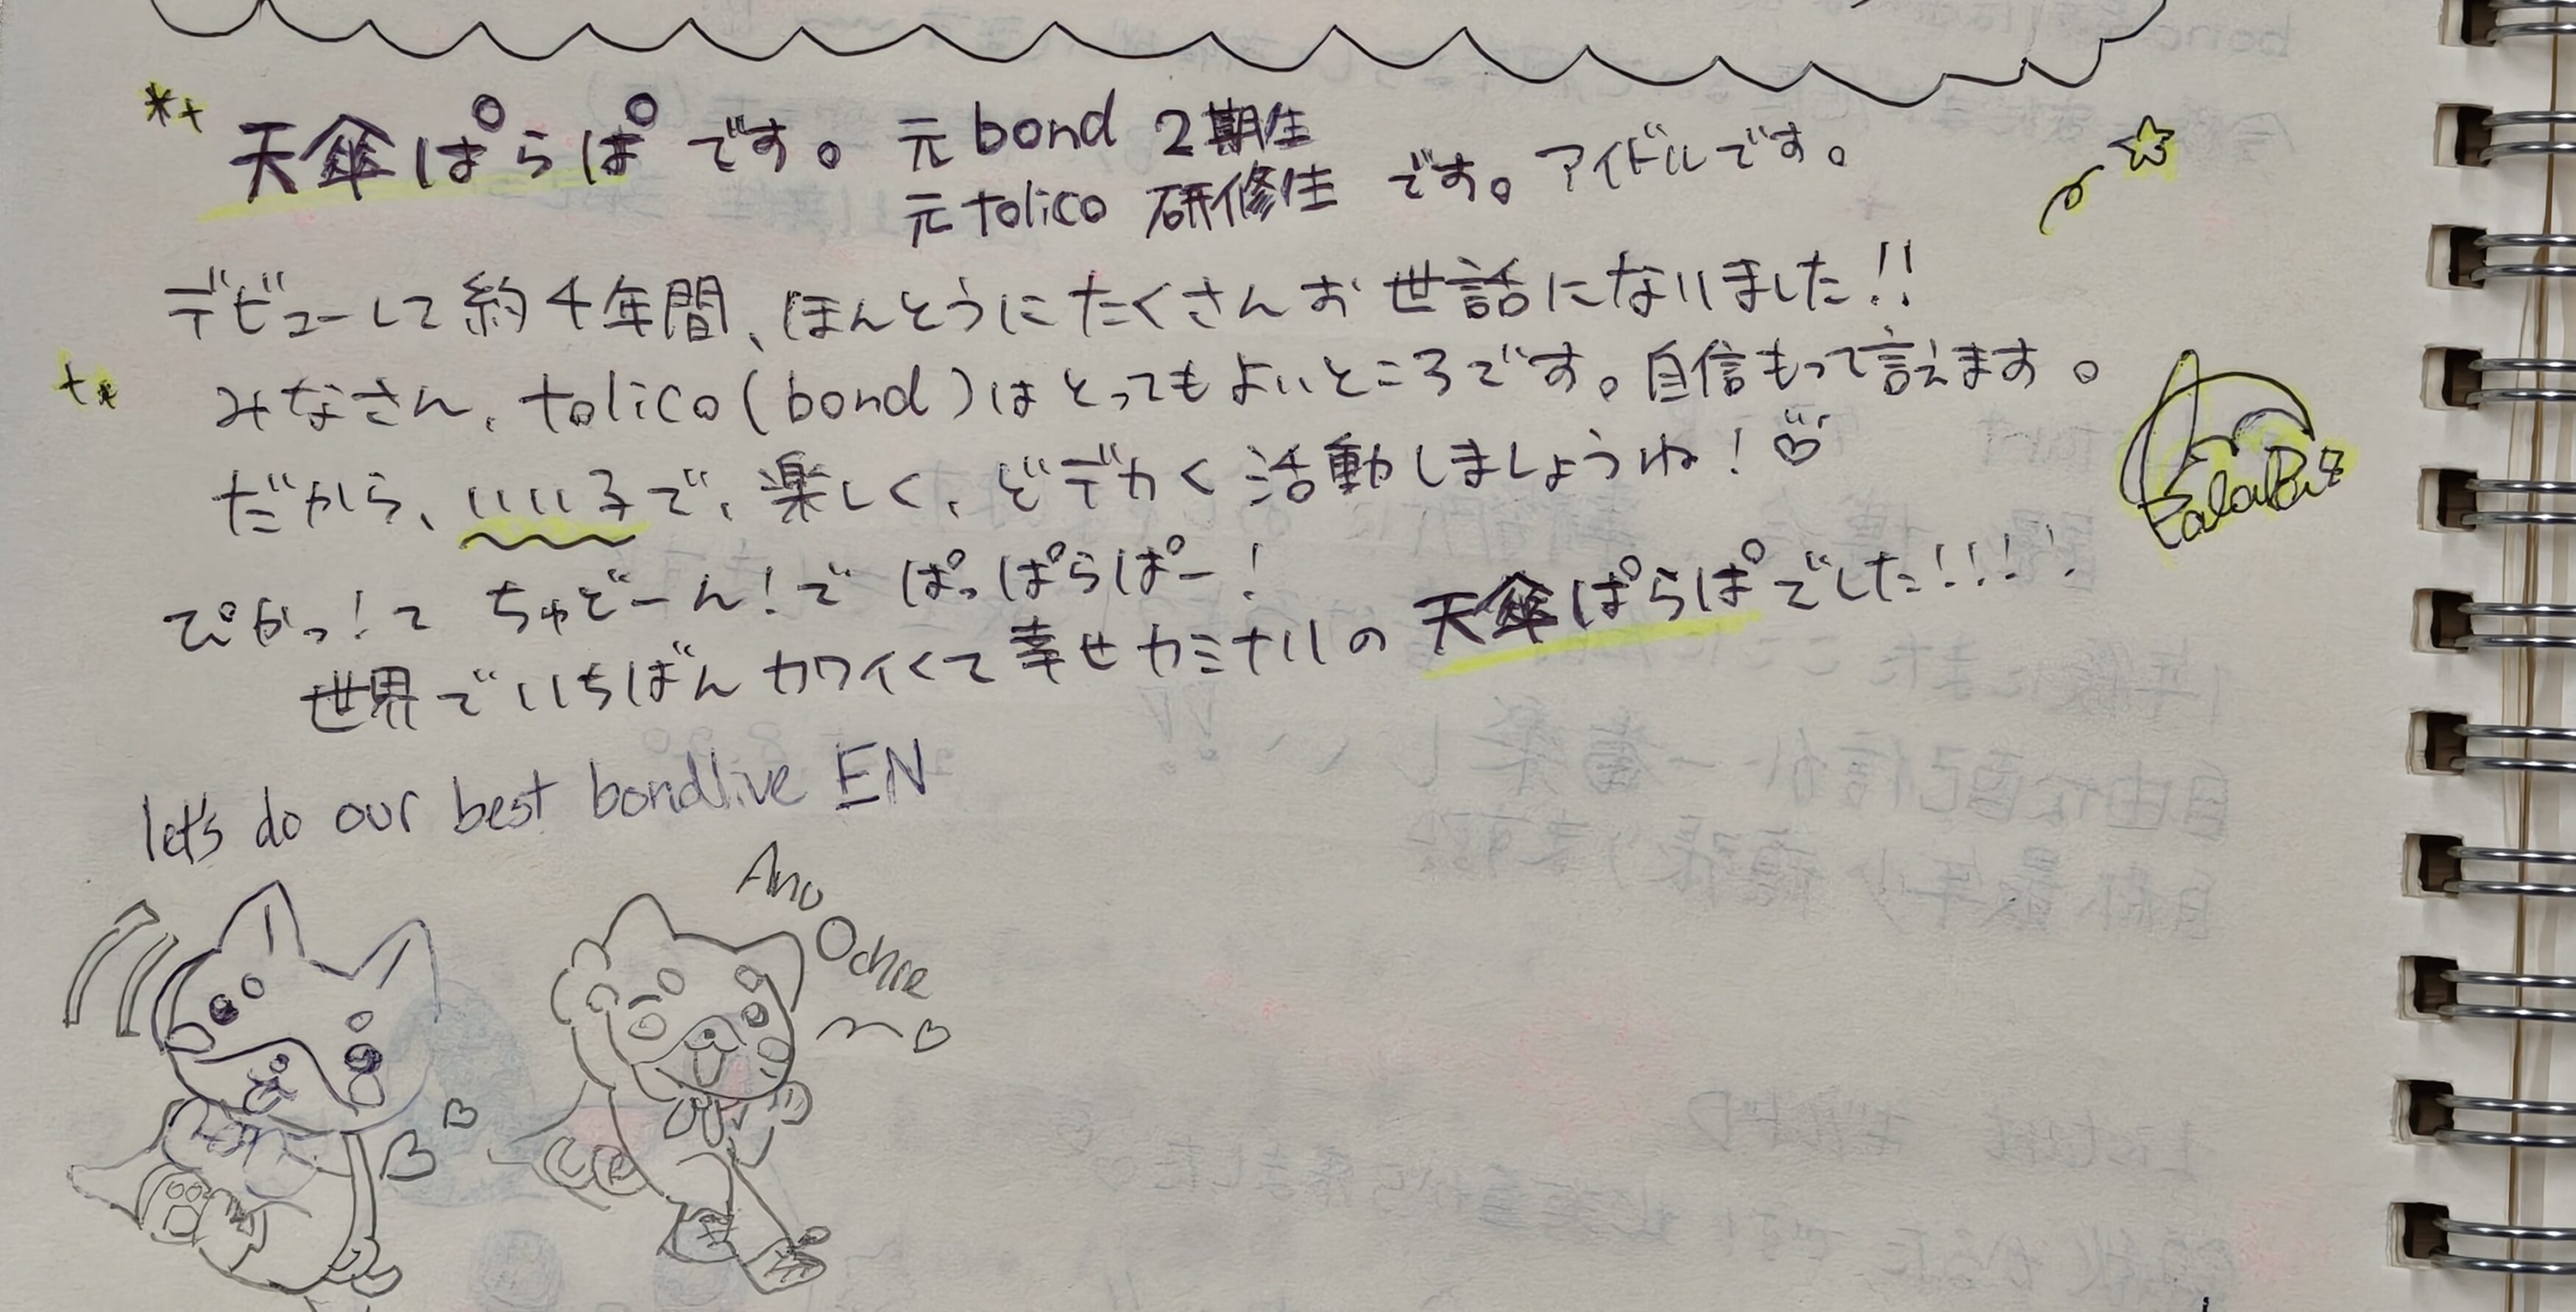 天傘ぱらぱです。元bond 2期生
元tolico 研修生 です。アイドルです。
デビューして約4年間、ほんとうにたくさんお世話になりました!!
みなさん、tolico(bond)はとってもよいところです。自信もって言えます。
だから、いい子で、楽しく、どデカく活動しましょうね!♡
ぴかっ!て ちゅどーん!で ぱっぱらぱー!
世界でいちばんカワイくて幸せカミナリの 天傘ぱらぱでした!!!!
let's do our best bondlive EN
Ano
Ochre